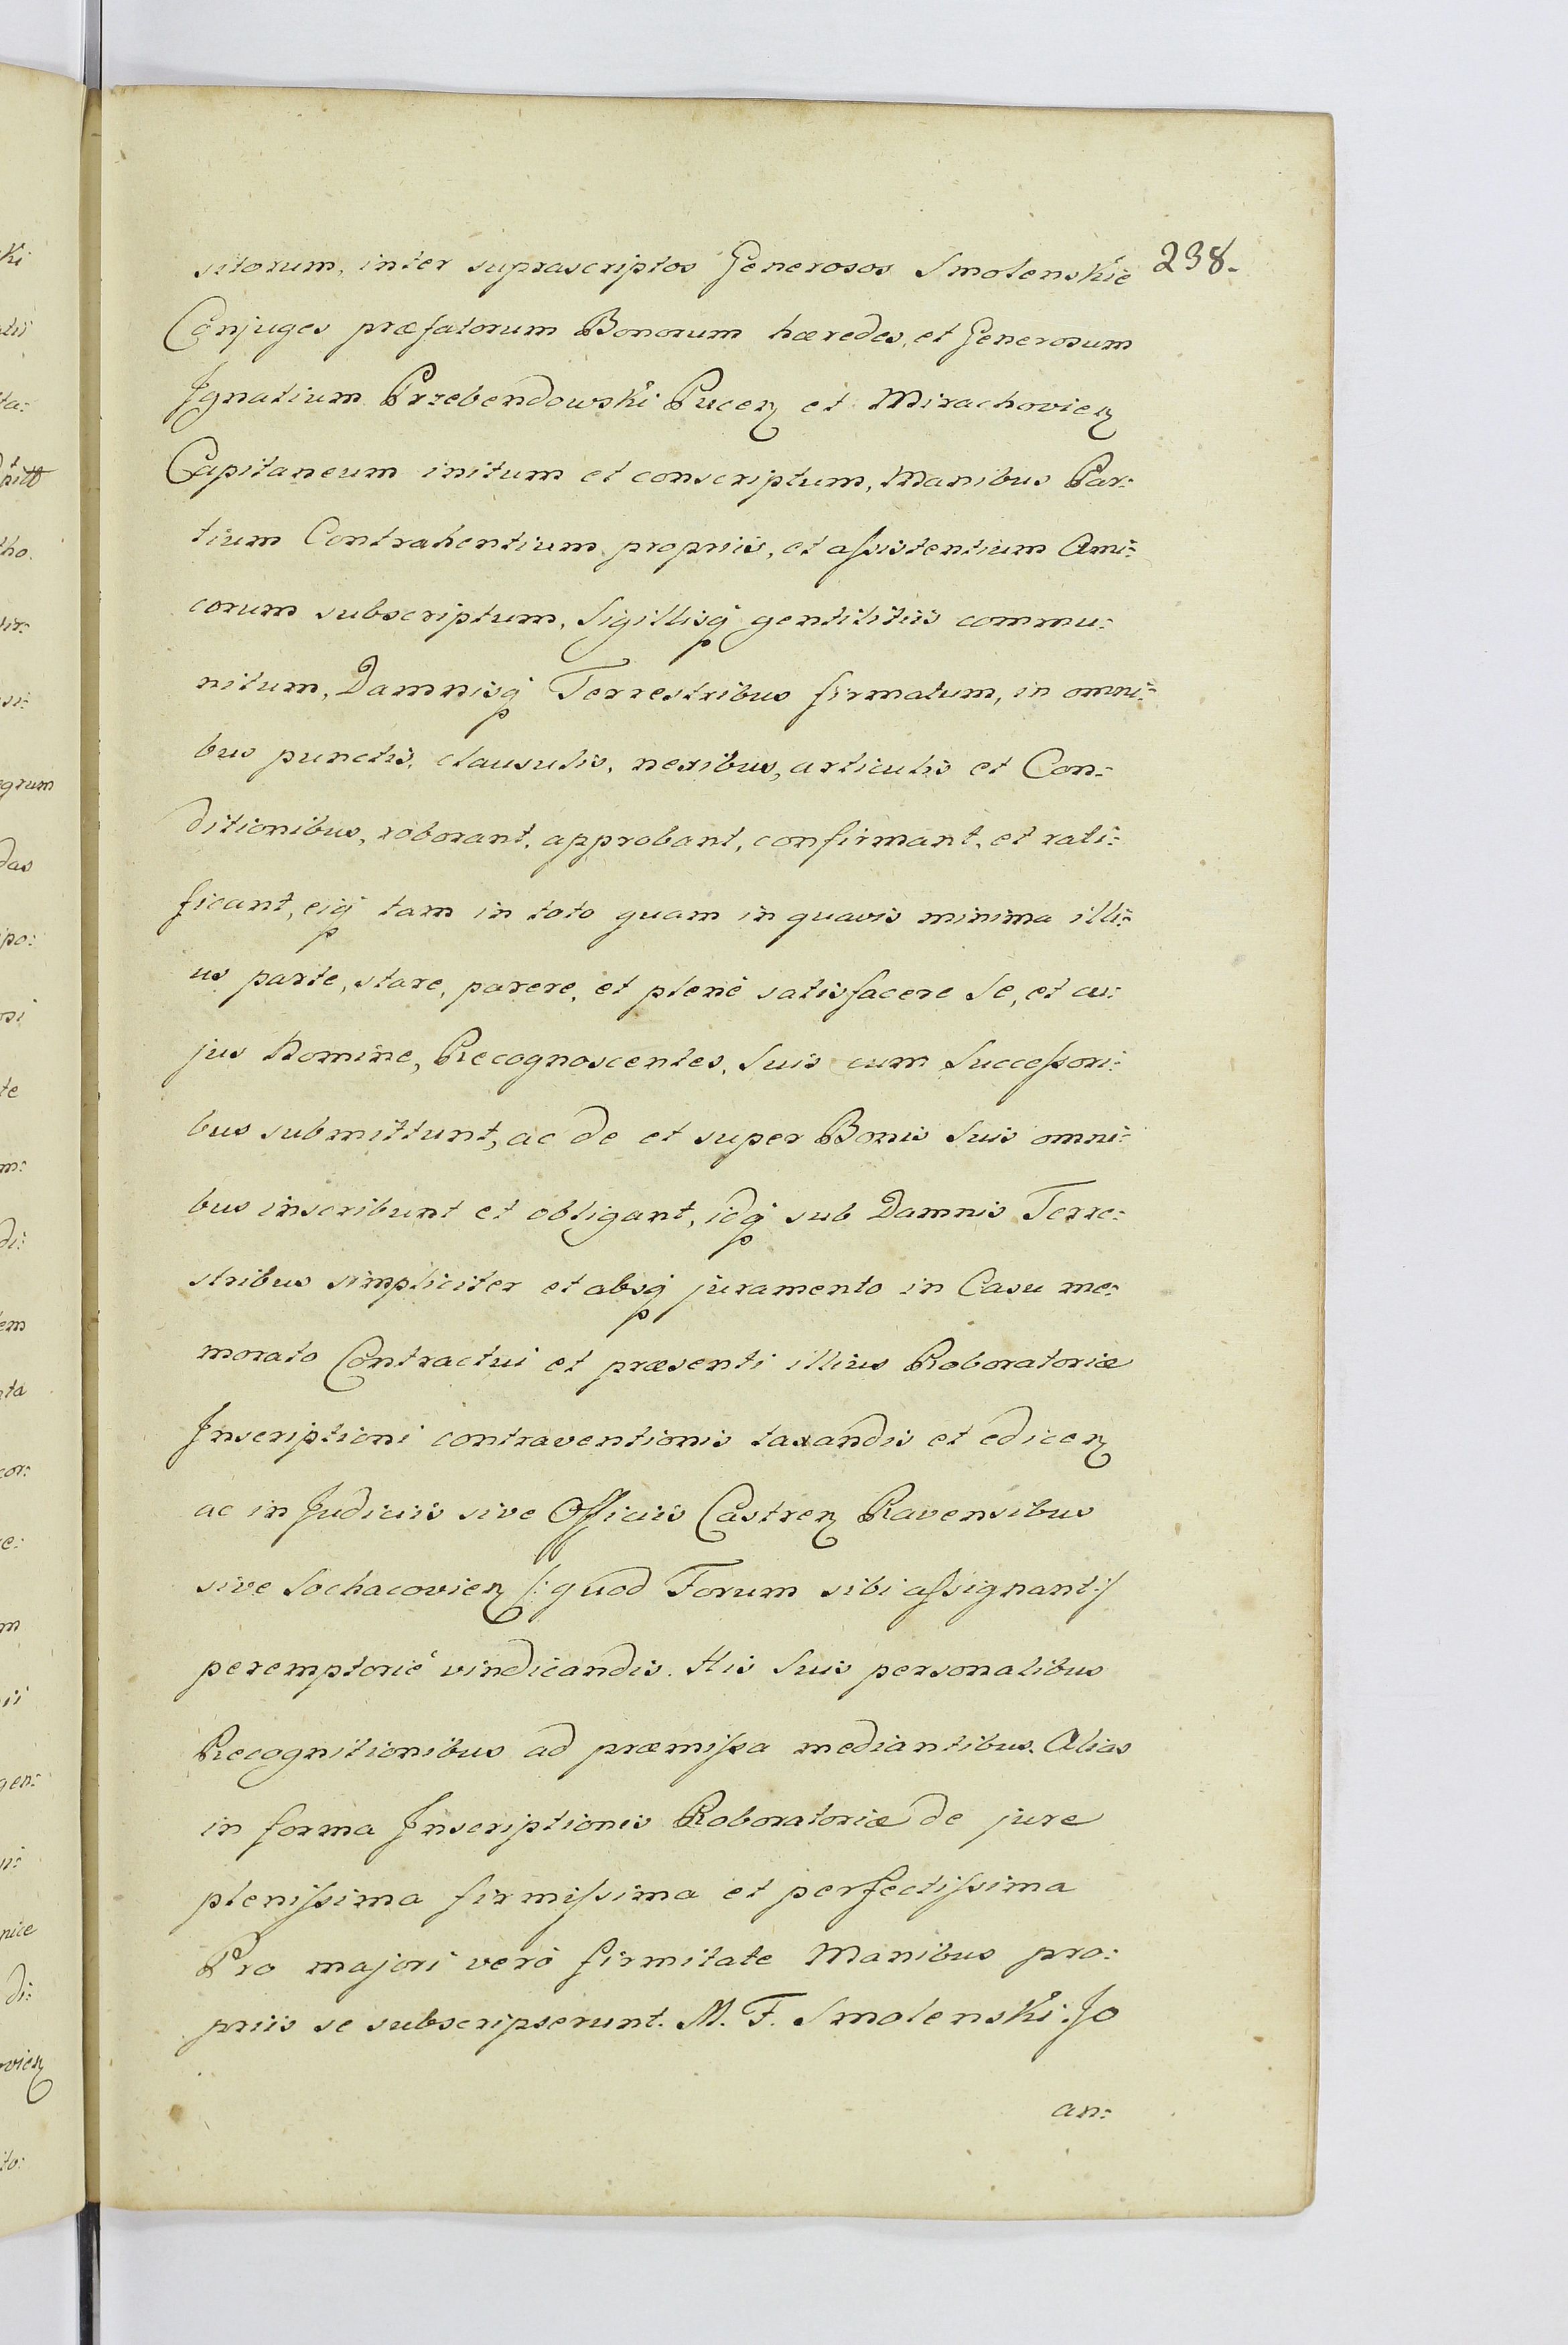 238.
sitorum, inter suprascriptos Generosos Smolenskie
Conjuges præfatorum Bonorum hæredes, et Generosum
Ignatium Przebendowski Pucen et Mirachovien
Capitaneum initum et conscriptum, Manibus Par:
tium Contrahentium propriis, et aſsistentium Ami:
corum subscriptum, Sigillisq gentilitiis commu:
nitum, Damnisq Terrestribus firmatum, in omni:
bus punctis, clausulis, nexibus, articulis et Con:
ditionibus, roborant, approbant, confirmant, et rati:
ficant, eiq tam in toto quam in quavis minima illi:
us parte, stare, parere, et plenè satisfacere Se, et cu:
jus Nomine, Recognoscentes, Suis cum Succeſsori:
bus submittunt, ac de et super Bonis Suis omni:
bus inscribunt et obligant, idq sub Damnis Terre:
stribus simpliciter et absq juramento in Casu me:
morato Contractui et præsenti illius Roboratoriæ
Inscriptioni contraventionis taxandis et edicen
ac in Judiciis sive Officiis Castren Ravensibus
sive Sochacovien /: quod Forum sibi aſsignant :/
peremptoriè vindicandis. His Suis personalibus
Recognitionibus ad præmiſsa mediantibus. Alias
in forma Inscriptionis Roboratoriæ de jure
pleniſsima firmiſsima et perfectiſsima
Pro majori verò firmitate Manibus pro:
priis se subscripserunt. M. F. Smolenski. Jo
an:
ki